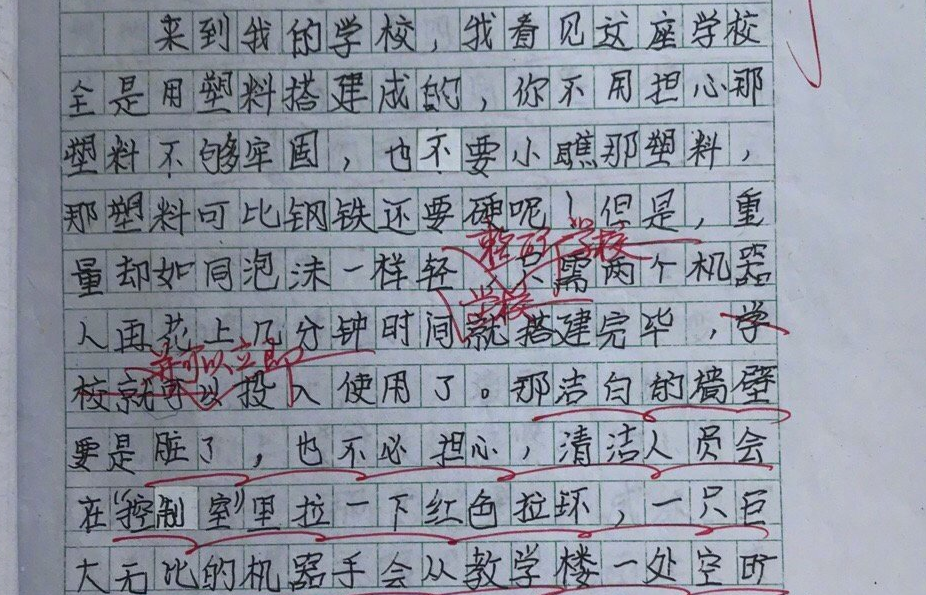 来到我的学校，我看见这座学校
全是用塑料搭建成的，你不用担心那
塑料不够牢固，也不要小瞧那塑料，
那塑料可比钢铁还要硬呢！但是，重
整所学校
量却如同泡沫一样轻，只需两个机器
学校
人再花上几分钟时间就搭建完毕，学
并可以立即
校就可以投入使用了。那洁白的墙壁
要是脏了，也不必担心，清洁人员会
在“控制室”里拉一下红色拉环，一只巨
大无比的机器手会从教学楼一处空旷